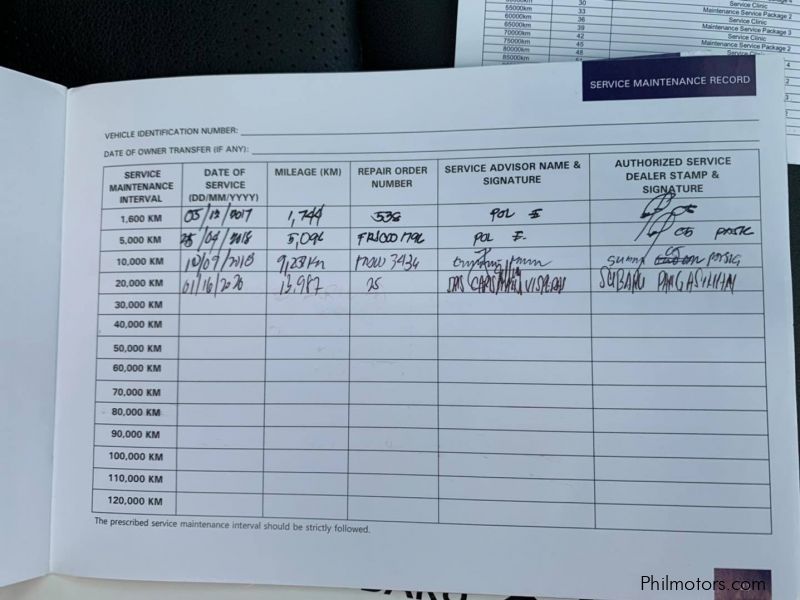 55000km 30 Service Clinic
60000km 33 Maintenance Service Package 2
65000km 36 Service Clinic
70000km 39 Maintenance Service Package 3
75000km 42 Service Clinic
80000km 45 Maintenance Service Package 2
85000km 48
SERVICE MAINTENANCE RECORD
VEHICLE IDENTIFICATION NUMBER:
DATE OF OWNER TRANSFER (IF ANY):
SERVICE MAINTENANCE INTERVAL DATE OF SERVICE (DD/MM/YYYY) MILEAGE (KM) REPAIR ORDER NUMBER SERVICE ADVISOR NAME & SIGNATURE AUTHORIZED SERVICE DEALER STAMP & SIGNATURE
1,600 KM 05/12/2017 1,744 538 POL
5,000 KM 25/04/2018 5,096 POL
10,000 KM 3434
20,000 KM 01/16/2020 13,987 25 SUBARU PANGASINAN
30,000 KM
40,000 KM
50,000 KM
60,000 KM
70,000 KM
80,000 KM
90,000 KM
100,000 KM
110,000 KM
120,000 KM
The prescribed service maintenance interval should be strictly followed.
Philmotors.com